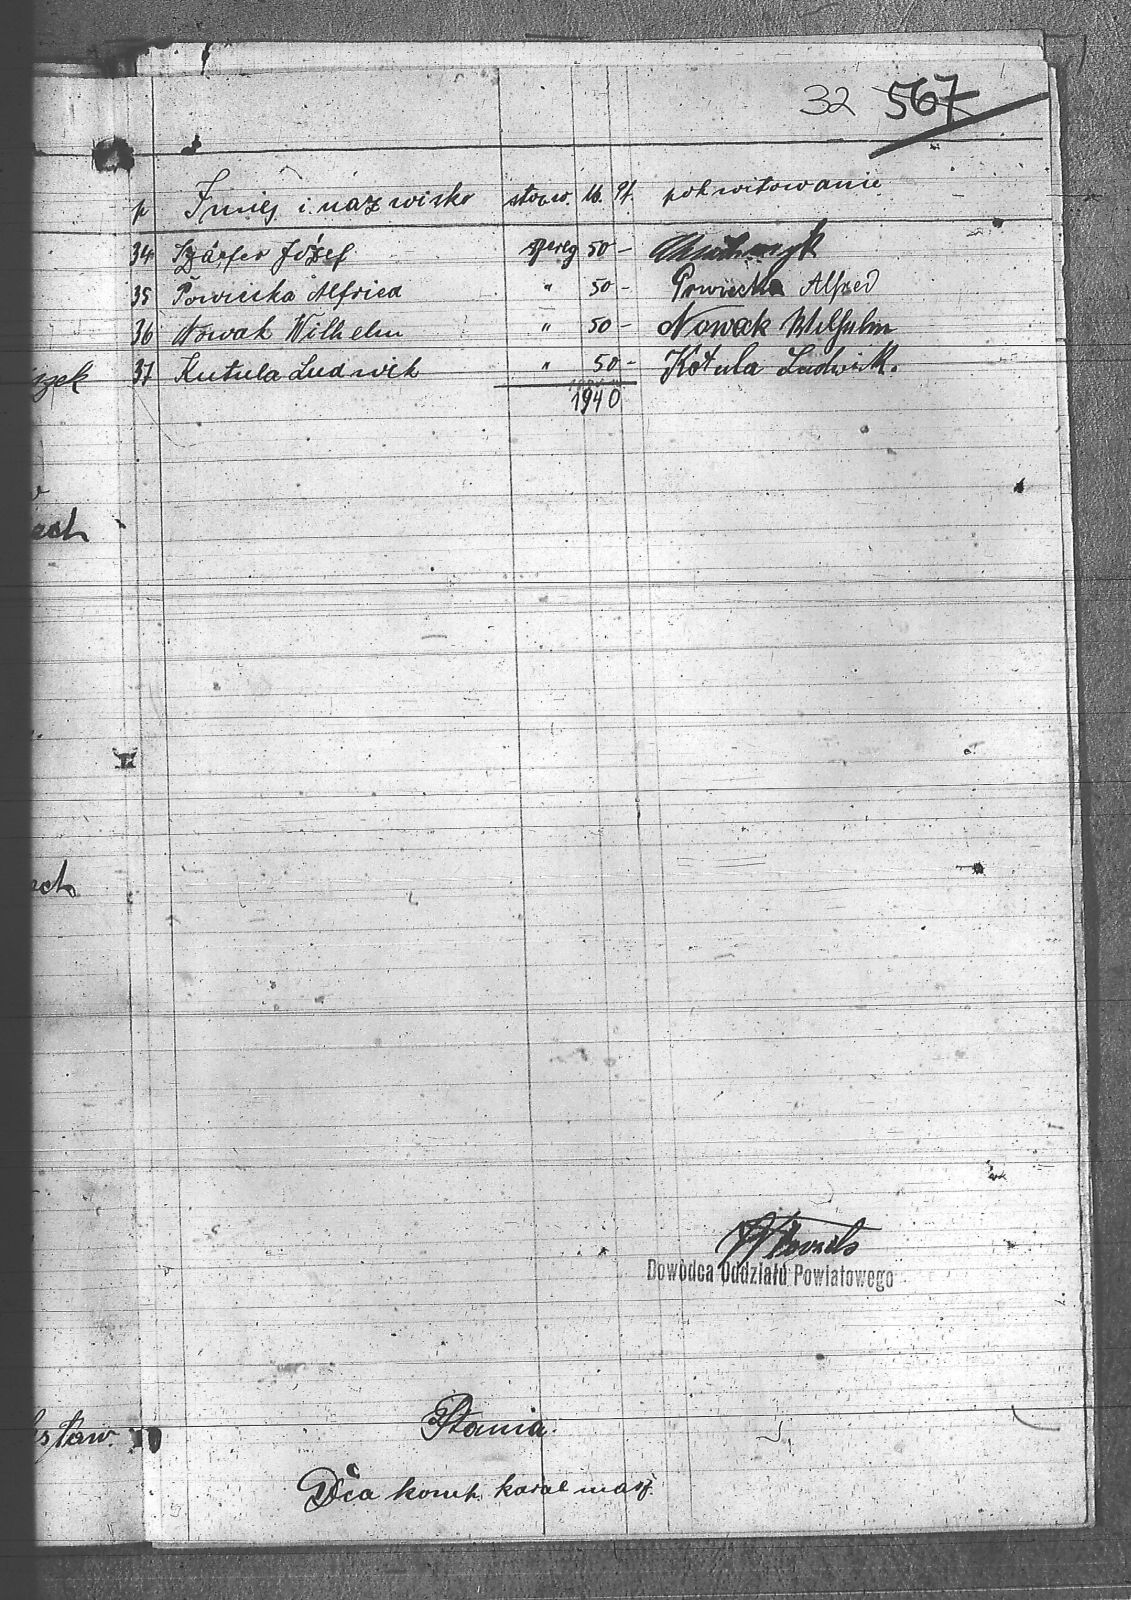 32 567
p Imię i nazwisko stopn. M. Pf. pokwitowanie
34 Szárfer Józef szereg 50 -
35 Powiecka Alfried " 50 - Powiecka Alfred
36 Nowak Wilhelm " 50 - Nowak Wilhelm
szek
37 Kutula Ludwik " 50 - Kotula Ludwik.
1940
ach
ach
Dowódca Oddziału Powiatowego
staw.
Stania.
Dca komp. karab masz.